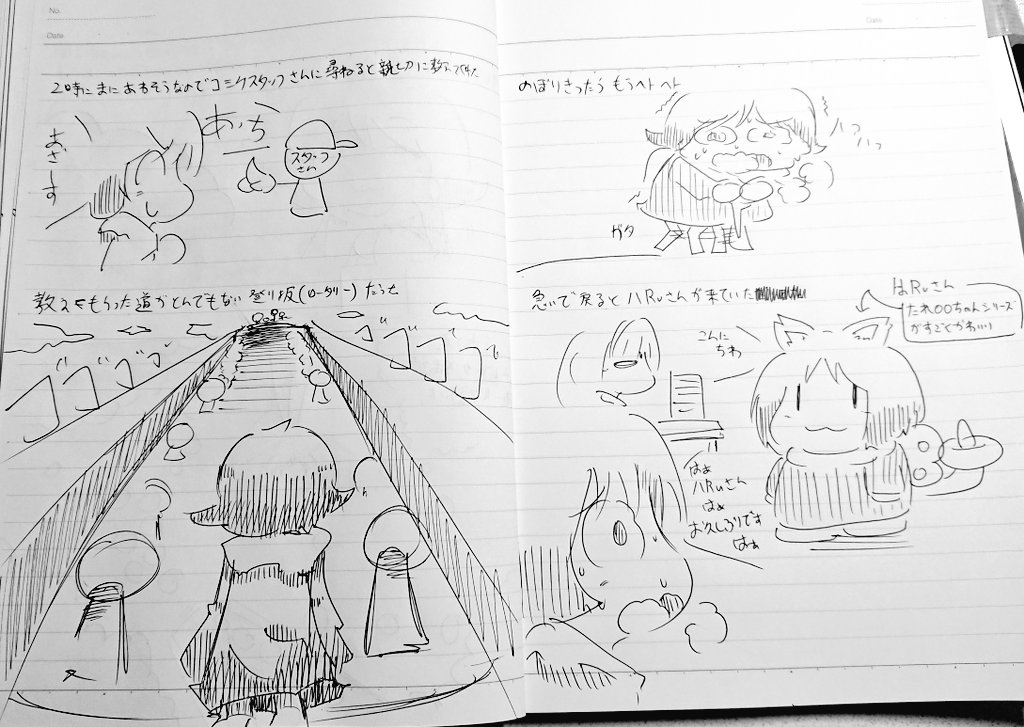 No.
Date
2時にまにあわそうなのでコミケスタッフさんに尋ねると親切に教えてくれた
あっち
スタッフ
さん
あざーす
教えてもらった道がとんでもない登り坂(ロータリー)だった
ゴゴゴゴ
ゴゴゴゴ
Date
のぼりきったらもうヘトヘト
ハァ
ハァ
ガタ
急いで戻るとハRuさんが来ていた
こんに
ちわ
はRuさん
たれ〇〇ちゃんシリーズ
かすごくかわいい
はぁ
ハRuさん
はぁ
お久しぶりです
はぁ